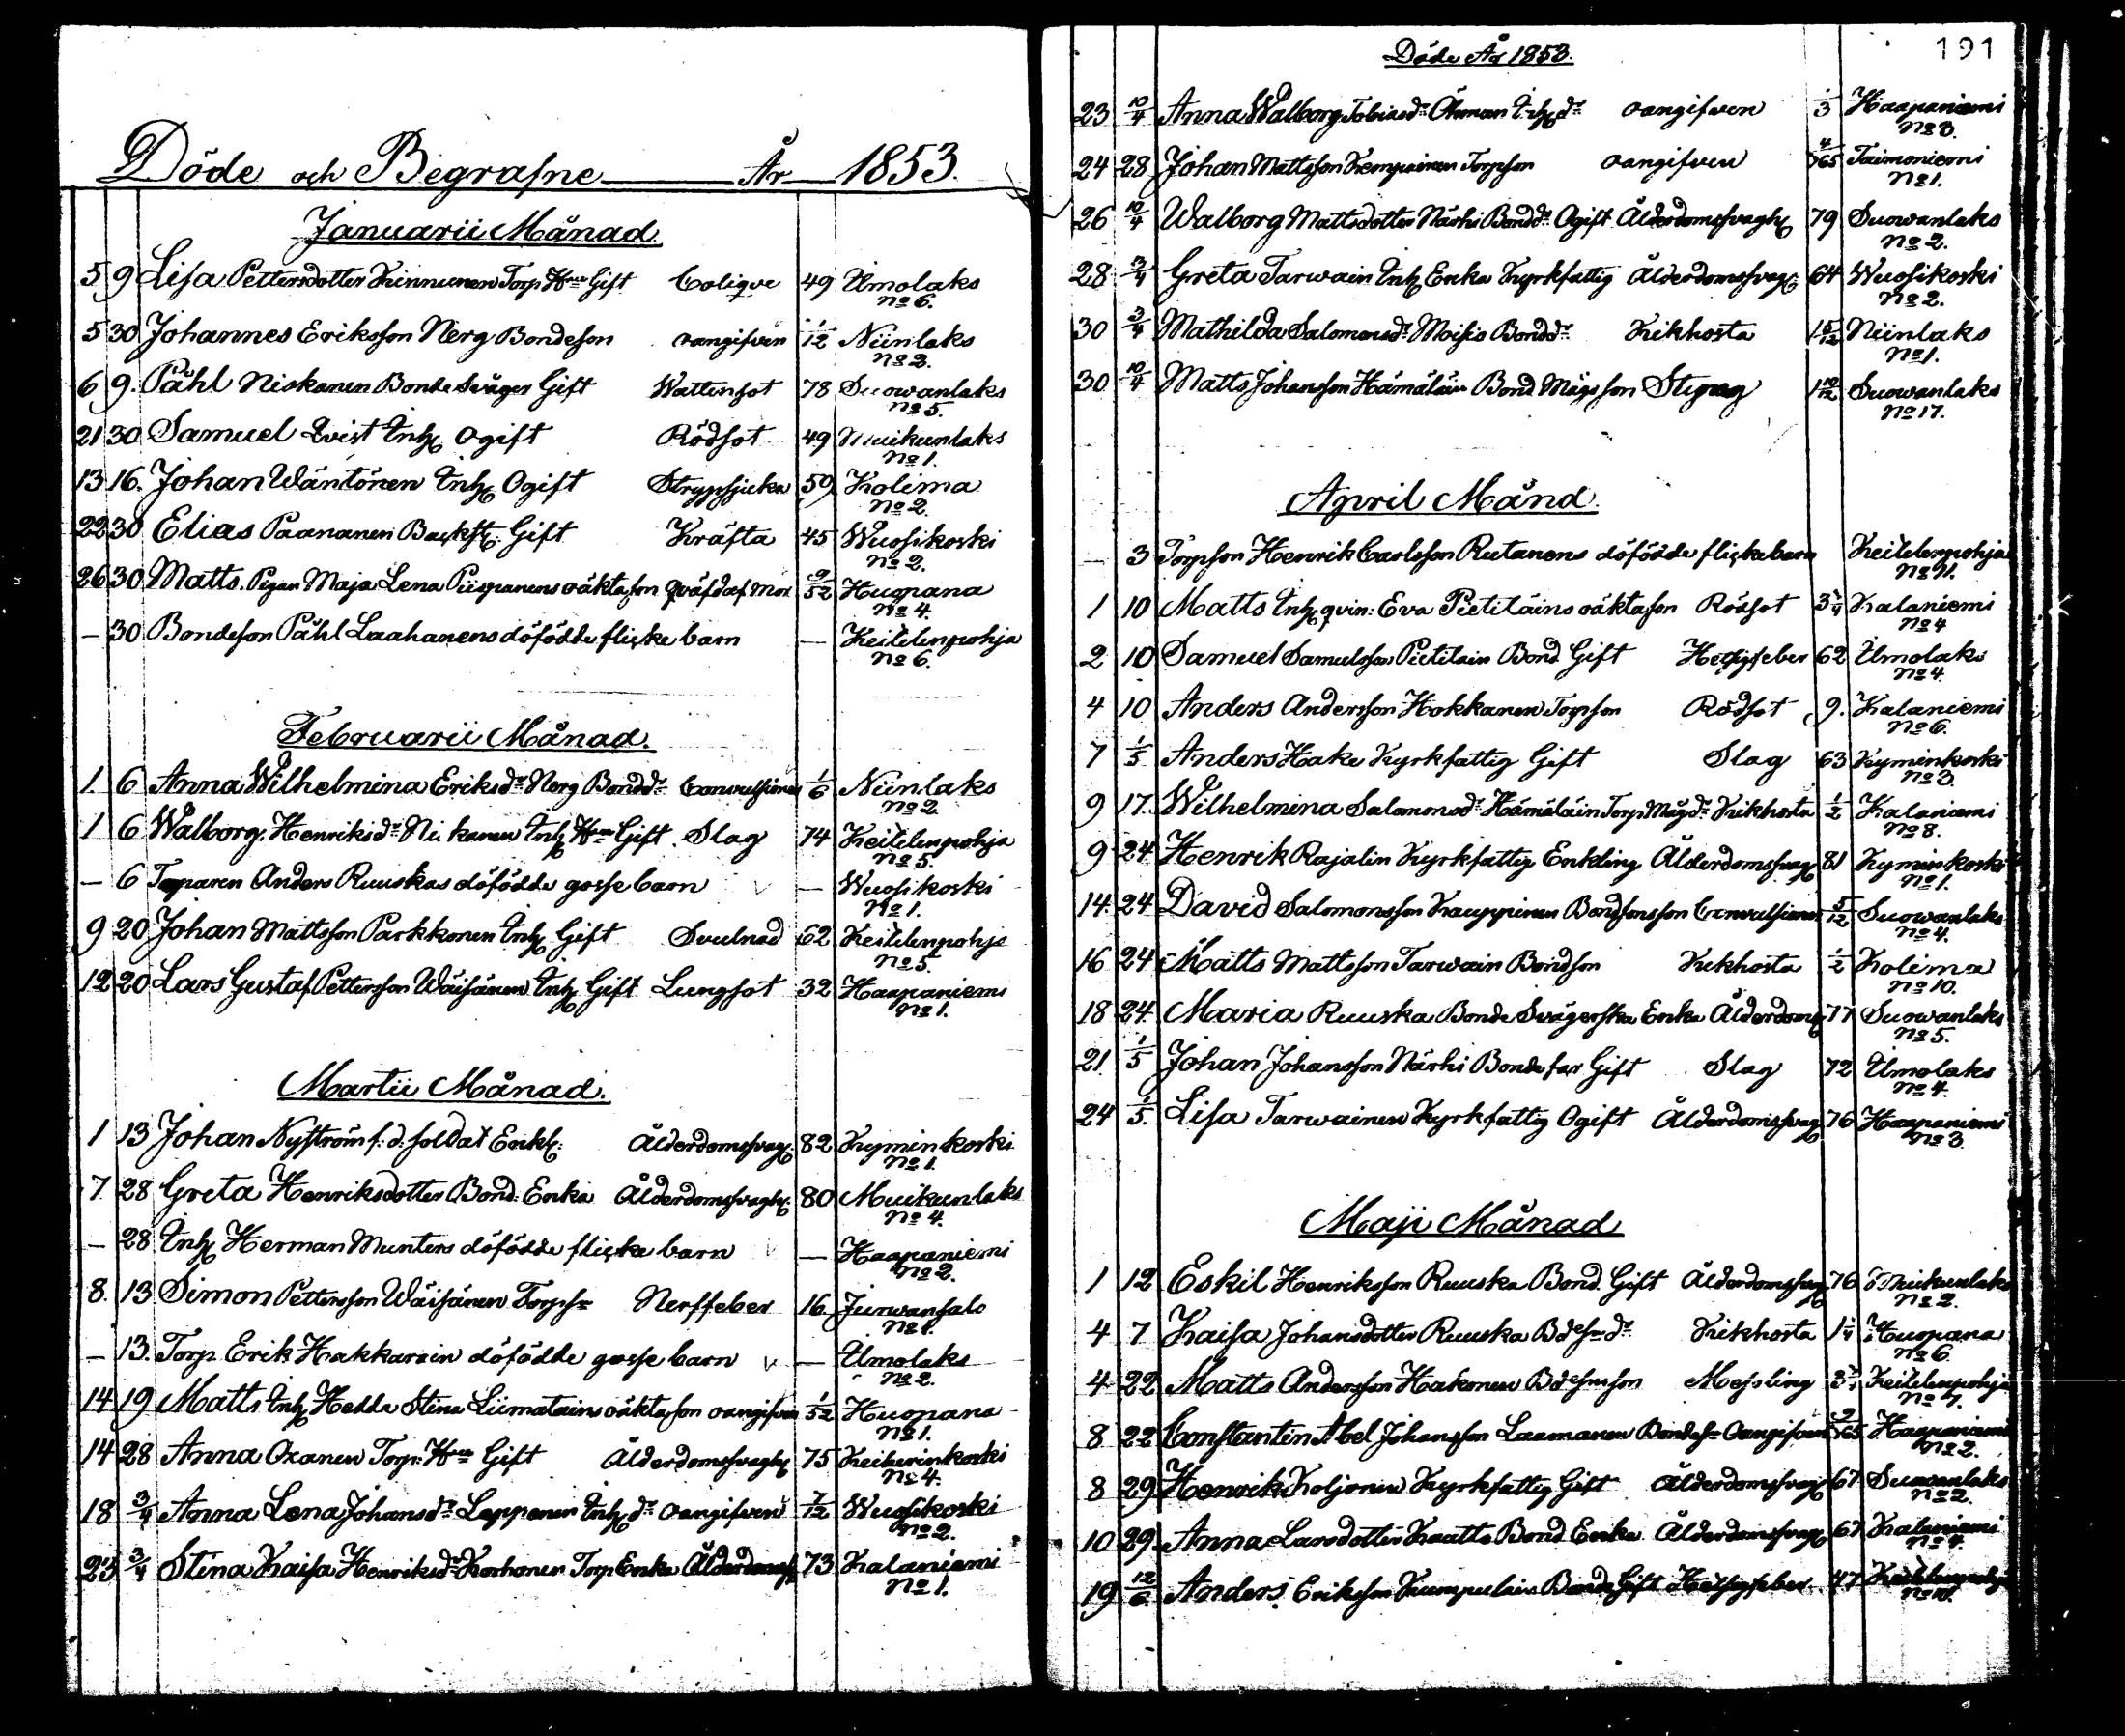 Döde och Begrafne År 1853.
Januarii Månad
5 9 Lisa Pettersdotter Kinnunen Torp. Hru Gift Colique 49 Umolaks
No 6.
5 30 Johannes Eriksson Nerg Bondeson oangifven 1/12 Niinlaks
No 2.
6 9. Påhl Niskanen Bonde Svåger Gift Wattensot 78 Suowanlaks
No 5.
21 30 Samuel Qvist Inh. Ogift Rödsot 49 Muikunlaks
No 1.
13 16. Johan Wäntönen Inh. Ogift Strypsjuka 59 Kolima
No 2.
22 30 Elias Paananen Backst. Gift Kräfta 45 Wuosikoski
No 2.
26 30 Matts. Pigan Maja Lena Piispanens oäkta son qväfd af mor 2/52 Huopana
No 4.
— 30 Bondeson Påhl Laahanens döfödde flicke barn — Keitelenpohja
No 6.
Februarii Månad.
1 6 Anna Wilhelmina Eriksdr Nerg Bonddr Convulsioner 1/6 Niinlaks
No 2.
1 6 Walborg Henriksdr Inh. Hru Gift. Slag 74 Keitelenpohja
No 5.
— 6 Torparen Anders Ruuskas döfödde gosse barn — Wuosikoski
No 1.
9 20 Johan Mattsson Parkkonen Inh. Gift Svulnad 62 Keitelenpohja
No 5.
12 20 Lars Gustaf Pettersson Wäisänen Inh. Gift Lungsot 32 Haapaniemi
No 1.
Martii Månad.
1 13 Johan Nyström f. d. soldat Enkl: Ålderdomssvag. 82 Kyminkoski
No 1.
7 28 Greta Henriksdotter Bond. Enka Ålderdomssvagh. 80 Muikunlaks
No 4.
— 28 Inh. Herman Munters döfödde flicke barn — Haapaniemi
No 2.
8. 13 Simon Pettersson Wäisänen Torpsn Nerffeber 16 Jurwansalo
No 1.
— 13. Torp. Erik Hakkarain döfödde gosse barn — Umolaks
No 2.
14 19 Matts Inh. Hedda Stina Liimatains oäkta son oangifven 1/52 Huopana
No 1.
14 28 Anna Oxanen Torp. Hru Gift Ålderdomssvagh. 75 Keiherinkoski
No 4.
18 3/4 Anna Lena Johansdr Leppänen Inh. dr oangifven 7/12 Wuosikoski
No 2.
23 3/4 Stina Kaisa Henriksdr Korhonen Torp Enka Ålderdomss 73 Kalaniemi
No 1.
191
Döde År 1853.
23 10/4 Anna Walborg Tobiasdr Öhman Inh. dr oangifven 1/3 Haapaniemi
No 3.
24 28 Johan Mattsson Kemppainen Torpson oangifven 4/365 Taimoniemi
No 1.
26 10/4 Walborg Mattsdotter Närhi Bonddr Ogift Ålderdomssvagh. 79 Suowanlaks
No 2.
28 3/4 Greta Tarwain Inh. Enka Kyrkfattig Ålderdomssvagh. 64 Wuosikoski
No 2.
30 3/4 Mathilda Salomonsdr Moisio Bonddr Kikhosta 1 5/12 Niinlaks
No 1.
30 10/4 Matts Johansson Hämäläin Bond Mågs son 1 10/12 Suowanlaks
No 17.
April Månd.
— 3 Torpson Henrik Carlsson Rutanens döfödde flicke barn Keitelenpohja
No 11.
1 10 Matts Inh. qvin: Eva Pietiläins oäkta son Rödsot 3 3/4 Kalaniemi
No 4
2 10 Samuel Samuelsson Pietiläin Bond Gift Hetsigfeber 62 Umolaks
No 4.
4 10 Anders Andersson Hokkanen Torpson Rödsot 9. Kalaniemi
No 6.
7 1/5 Anders Hake Kyrkfattig Gift Slag 63 Kyminkoski
No 3.
9 17. Wilhelmina Salomonsdr Hämäläin Torp. Mågdr Kikhosta 1/2 Kalaniemi
No 8.
9 24 Henrik Rajalin Kyrkfattig Enkling Ålderdomssvag 81 Kyminkoski
No 1.
14. 24 David Salomonsson Kauppinen Bondsonsson Convulsioner 5/12 Suowanlaks
No 4.
16 24 Matts Mattsson Tarwain Bondson Kikhosta 1/2 Kolima
No 10.
18 24. Maria Ruuska Bonde Svägerska Enka Ålderdoms 77 Suowanlaks
No 5.
21. 1/5 Johan Johansson Närhi Bonde far Gift Slag 72 Umolaks
No 4.
24 1/5. Lisa Tarwainen Kyrkfattig Ogift Ålderdomssvag 76 Haapaniemi
No 3
Maji Månad
1 12 Eskil Henriksson Ruuska Bond. Gift Ålderdomssvag 76 Muikunlaks
No 2.
4 7 Kaisa Johansdotter Ruuska Bdesn dr Kikhosta 1 1/4 Huopana
No 6.
4 22 Matts Andersson Hakonen Bdesonson Messling Keitelenpohja
No 7.
8 22 Constantin Abel Johansson Laamanen Bondesn Oangifven Haapaniemi
No 2.
8 29 Henrik Koljonen Kyrkfattig Gift Ålderdomssvagh 67 Suowanlaks
No 2.
10 29. Anna Larsdotter Kaatts Bond Enka Ålderdomssvagh 67 Kalaniemi
19 12/6 Anders Eriksson Kumpulain Bonde Gift Hetsigfeber. 47 Keitelenpohja
No 10.